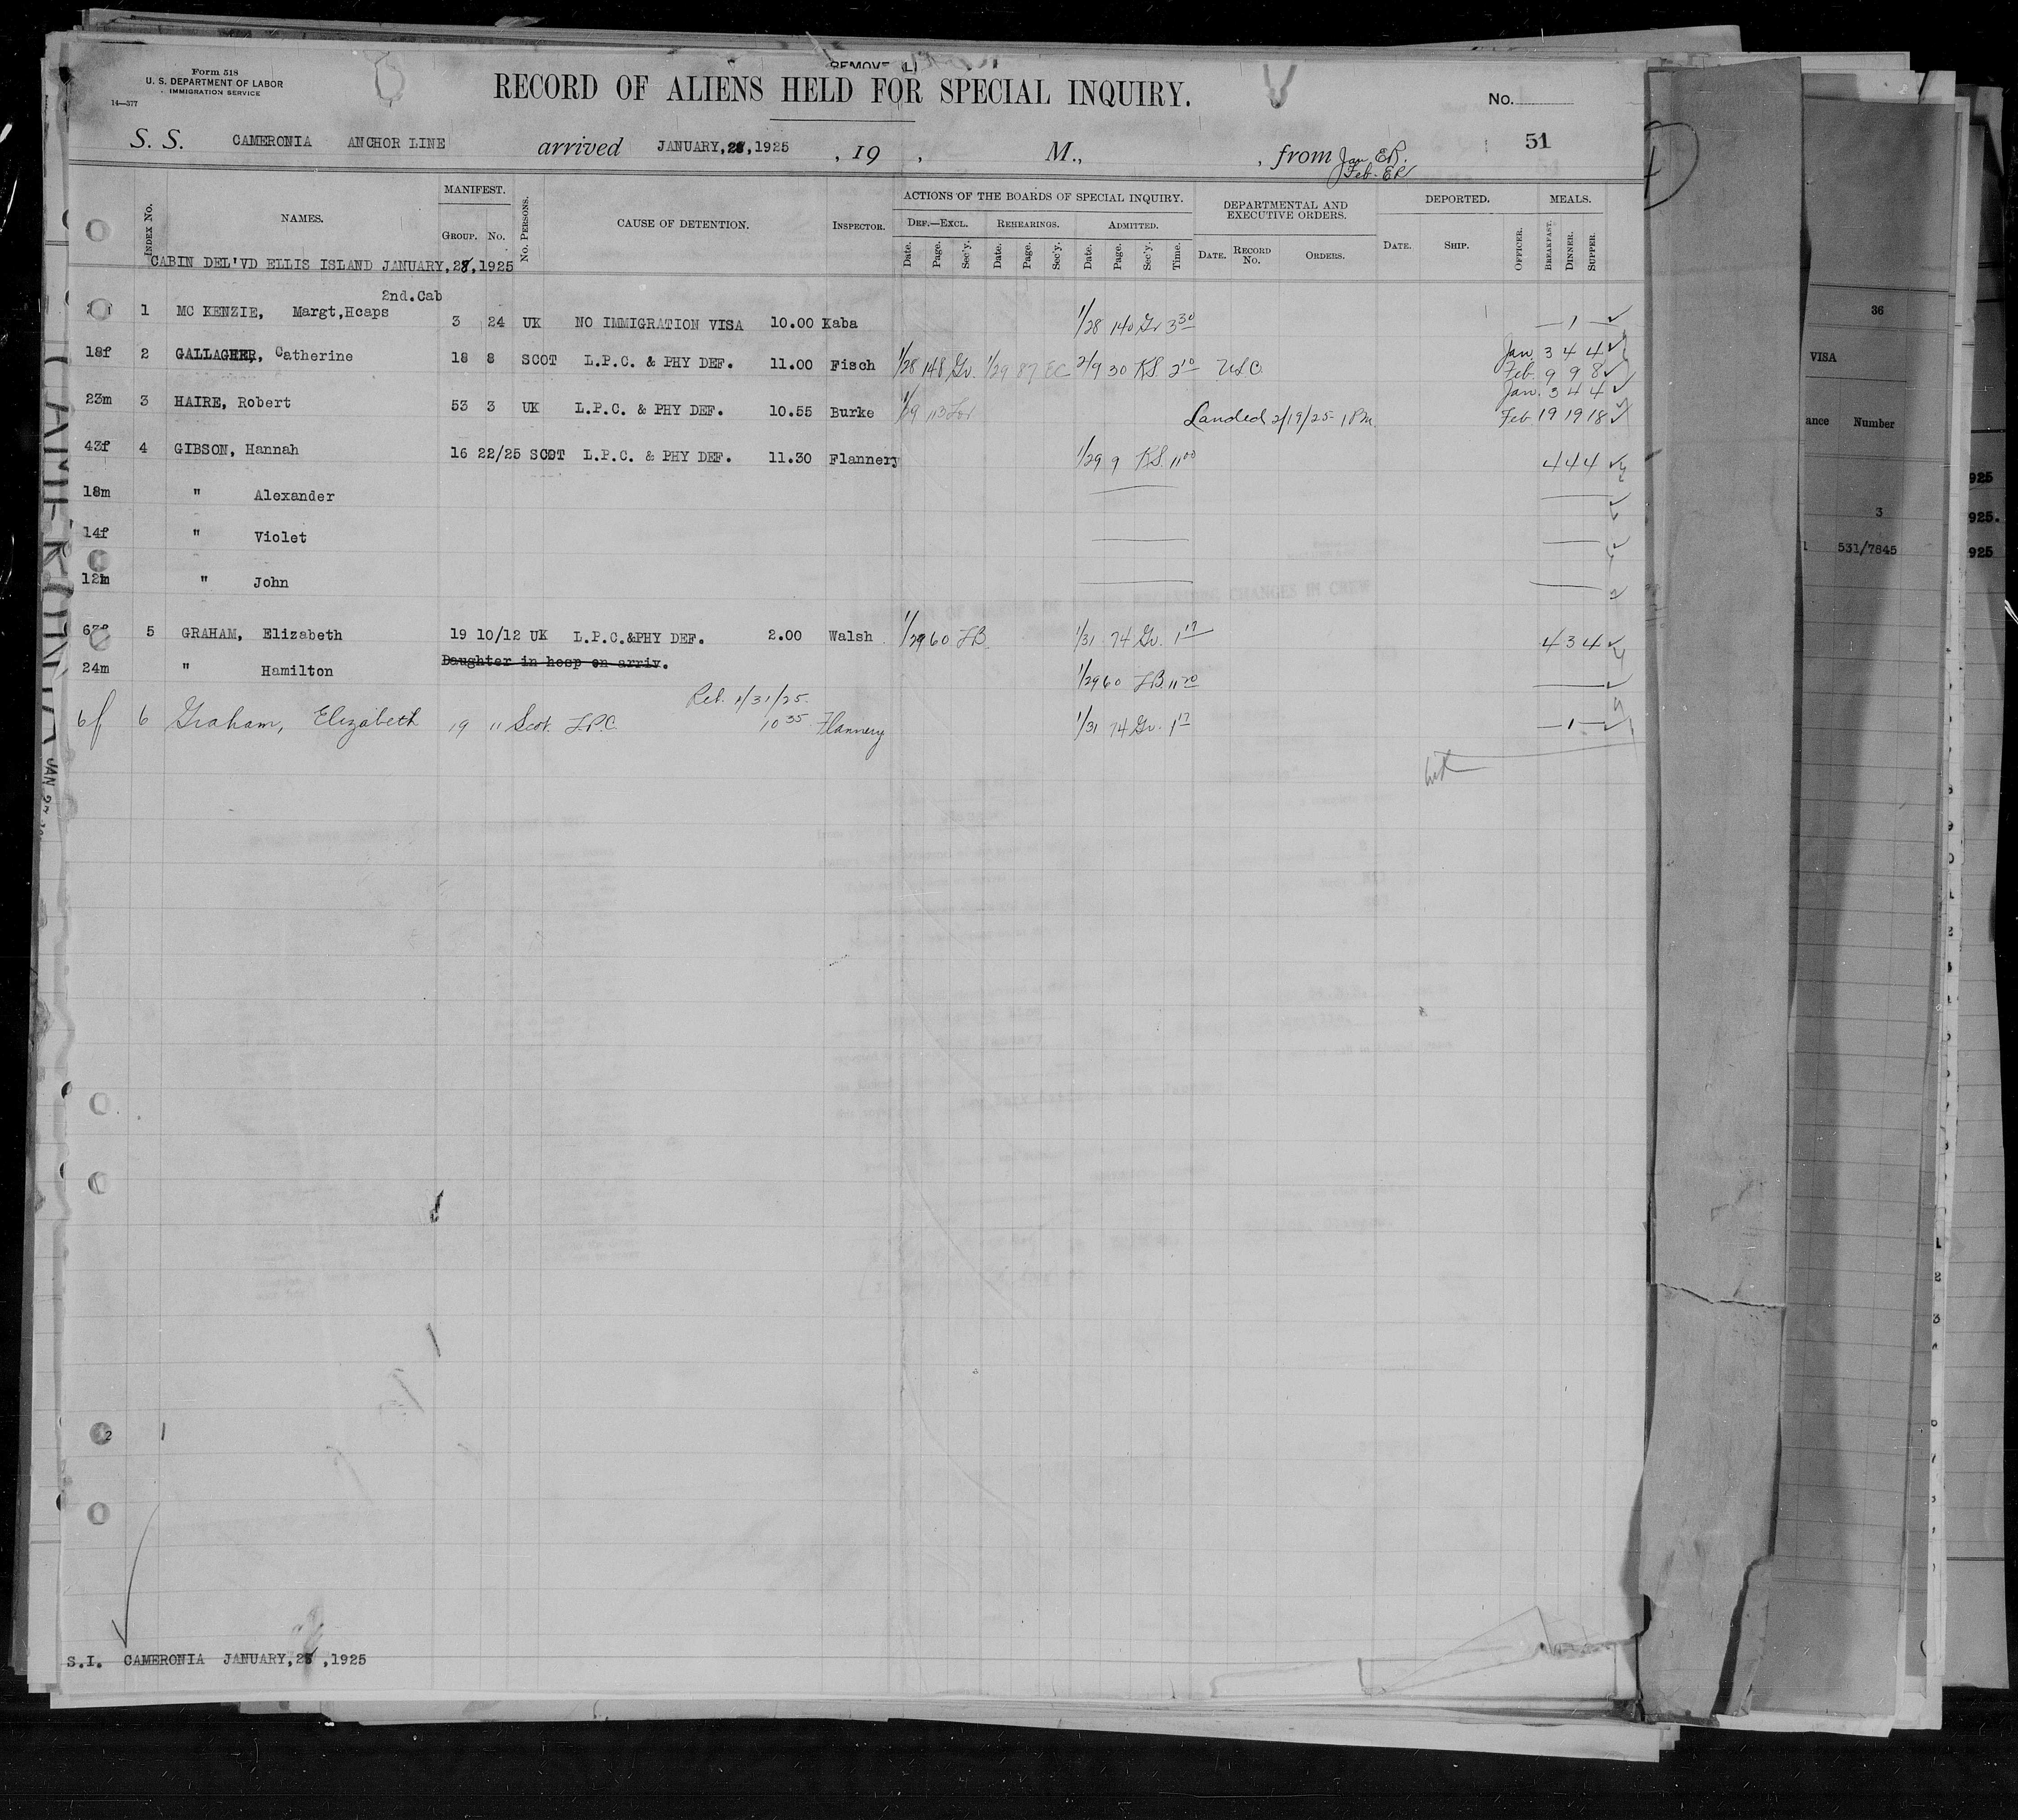 Form 518
U. S. DEPARTMENT OF LABOR
IMMIGRATION SERVICE
14—377
RECORD OF ALIENS HELD FOR SPECIAL INQUIRY.
No.
51
S. S. CAMERONIA ANCHOR LINE arrived JANUARY,28,1925 , 19 , M., , from Jan. ER.
Feb. ER
INDEX No. NAMES. MANIFEST. GROUP. No. No. PERSONS. CAUSE OF DETENTION. INSPECTOR. ACTIONS OF THE BOARDS OF SPECIAL INQUIRY. DEPARTMENTAL AND EXECUTIVE ORDERS. DEPORTED. MEALS.
DEF.—EXCL. REHEARINGS. ADMITTED.
Date. Page. Sec'y. Date. Page. Sec'y. Date. Page. Sec'y. Time. DATE. RECORD No. ORDERS. DATE. SHIP. OFFICER. BREAKFAST. DINNER. SUPPER.
CABIN DEL'VD ELLIS ISLAND JANUARY,28,1925
2nd.Cab
1 MC KENZIE, Margt,Hcaps 3 24 UK NO IMMIGRATION VISA 10.00 Kaba 1/28 140 Gr 3 30 — 1 —
18f 2 GALLAGHER, Catherine 18 8 SCOT L.P.C. & PHY DEF. 11.00 Fisch 1/28 148 Gr. 1/29 87 EC 2/9 30 KS. 2 10 Jan. 3 4 4
Feb. 9 9 8
23m 3 HAIRE, Robert 53 3 UK L.P.C. & PHY DEF. 10.55 Burke 1/29 113 Landed 2/19/25 1 PM. Jan. 3 4 4
Feb 19 19 18
43f 4 GIBSON, Hannah 16 22/25 SCOT L.P.C. & PHY DEF. 11.30 Flannery 1/29 9 KS. 11 00 4 4 4
18m " Alexander
14f " Violet
12m " John
5 GRAHAM, Elizabeth 19 10/12 UK L.P.C.&PHY DEF. 2.00 Walsh 1/29 60 1/31 74 Gr. 1 17 4 3 4
Daughter in hosp on arriv.
24m " Hamilton 1/29 60
Reb. 1/31/25.
6f 6 Graham, Elizabeth 19 11 Scot. L.P.C. 10 35 Flannery 1/31 74 Gr. 1 17 — 1 —
S.I. CAMERONIA JANUARY,28,1925
36
VISA
Number
925
3
925.
531/7845
925